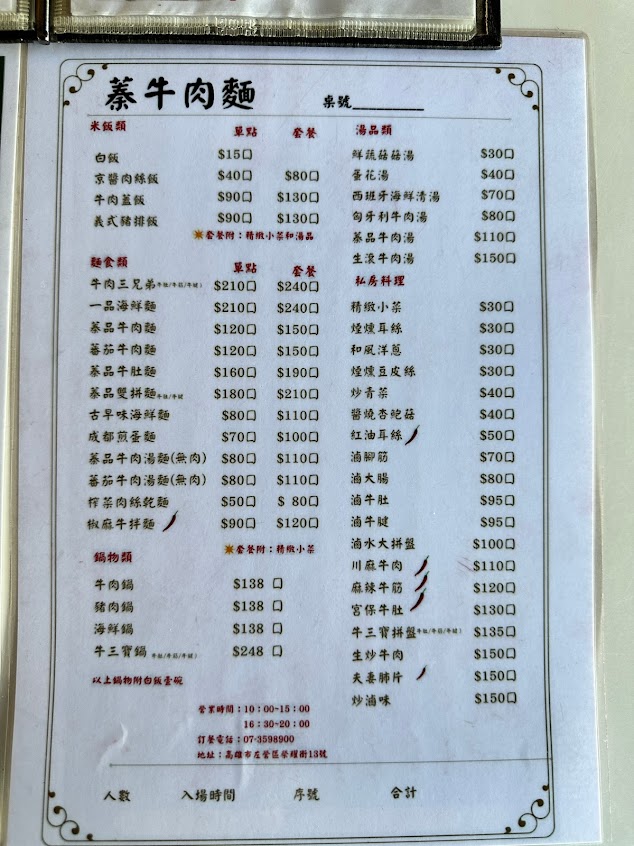 蓁牛肉麵 桌號
米飯類 單點 套餐
白飯 $15口
京醬肉絲飯 $40口 $80口
牛肉蓋飯 $90口 $130口
義式豬排飯 $90口 $130口
套餐附：精緻小菜和湯品
麵食類 單點 套餐
牛肉三兄弟(牛肚/牛筋/牛腱) $210口 $240口
一品海鮮麵 $210口 $240口
蓁品牛肉麵 $120口 $150口
蕃茄牛肉麵 $120口 $150口
蓁品牛肚麵 $160口 $190口
蓁品雙拼麵 牛肚/牛腱 $180口 $210口
古早味海鮮麵 $80口 $110口
成都煎蛋麵 $70口 $100口
蓁品牛肉湯麵(無肉) $80口 $110口
蕃茄牛肉湯麵(無肉) $80口 $110口
榨菜肉絲乾麵 $50口 $ 80口
椒麻牛拌麵 $90口 $120口
套餐附：精緻小菜
鍋物類
牛肉鍋 $138 口
豬肉鍋 $138 口
海鮮鍋 $138 口
牛三寶鍋(牛肚/牛筋/牛腱) $248 口
以上鍋物附白飯壹碗
湯品類
鮮蔬菇菇湯 $30口
蛋花湯 $40口
西班牙海鮮清湯 $70口
匈牙利牛肉湯 $80口
蓁品牛肉湯 $110口
生滾牛肉湯 $150口
私房料理
精緻小菜 $30口
煙燻耳絲 $30口
和風洋蔥 $30口
煙燻豆皮絲 $30口
炒青菜 $40口
醬燒杏鮑菇 $40口
紅油耳絲 $50口
滷腳筋 $70口
滷大腸 $80口
滷牛肚 $95口
滷牛腱 $95口
滷水大拼盤 $100口
川麻牛肉 $110口
麻辣牛筋 $120口
宮保牛肚 $130口
牛三寶拼盤(牛肚/牛筋/牛腱) $135口
生炒牛肉 $150口
夫妻肺片 $150口
炒滷味 $150口
營業時間：10：00~15：00
16：30~20：00
訂餐電話：07-3598900
地址：高雄市左營區榮耀街13號
人數 入場時間 序號 合計